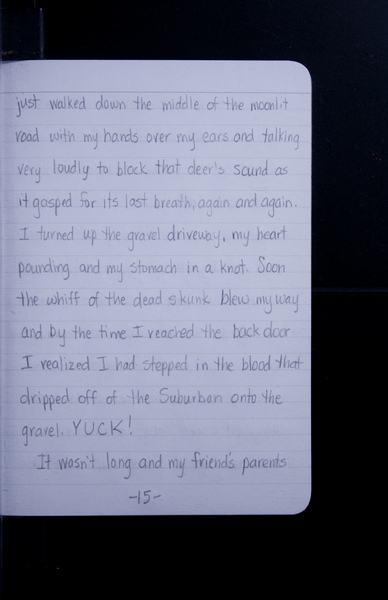 just walked down the middle of the moonlit
road with my hands over my ears and talking
very loudly to block that deer's sound as
it gasped for its last breath, again and again.
I turned up the gravel driveway, my heart
pounding and my stomach in a knot. Soon
the whiff of the dead skunk blew my way
and by the time I reached the back door
I realized I had stepped in the blood that
dripped off of the Suburban onto the
gravel. YUCK!
It wasn't long and my friend's parents
-15-